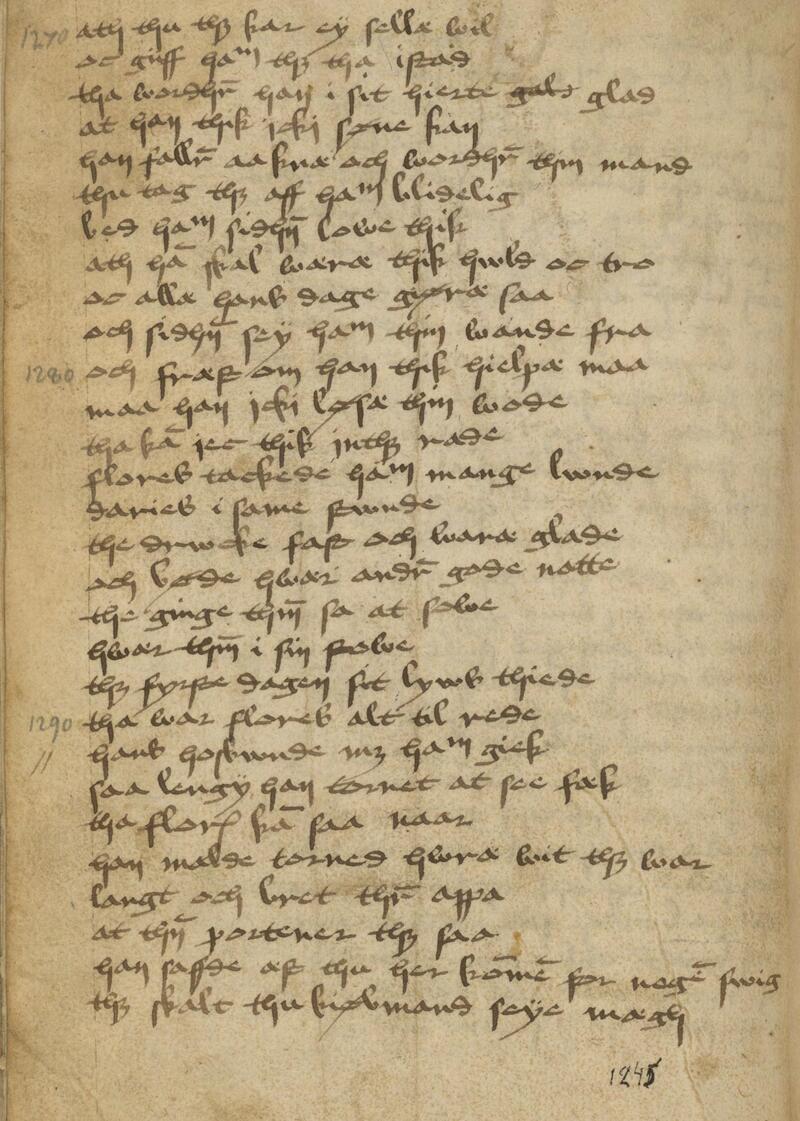 1270 ath thu thꝫ kar ey sellæ wil
oc giff haᵐ thꝫ tha i stad
tha wordhr̄ han i sit hierte gals glad
at han thik icki søne kan
han fallr̄ aa knæ och wordhr̄ thin mand
thu tag thꝫ aff haᵐ blidelig
bed haᵐ sidhn̄ lowe thik
ath hā skal wæræ thik hwld oc tro
oc allæ hans dage gøræ saa
och sidhn̄ sey haᵐ thin wande fra
1280 och fræst om han thik hielpæ maa
maa han icki løsæ thin wode
tha kā iec thik inthꝫ rade
flores tackede haᵐ mange lwnde
daries i same stwnde
the drwcke fast och waræ glade
och bøde hwær andr̄ gode natte
the ginge thm̄ sa at sowe
hwær thm̄ i sin stowe
thꝫ fyrste dagen sit lyws thiede
1290 tha war flores alt til rede
// hans hosbwnde mꝫ haᵐ giek
saa lengy han tornet at see fæk
tha flores kā saa naar
han malde torned hworæ wit thꝫ war
langt och bret thr̄ appa
at thn̄ portener thꝫ saa
han saffde æst thu her kōmē for nogē swig
thꝫ skalt thu kiøbmand seye mægh
1245